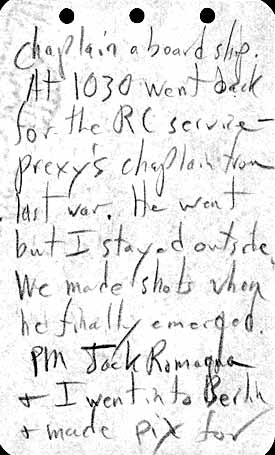 chaplain aboard ship.
At 1030 went back
for the RC service -
prexy's chaplain from
last war. He went
but I stayed outside.
We made shots when
he finally emerged.
PM Jack Romagna
+ I went into Berlin
+ made pix for